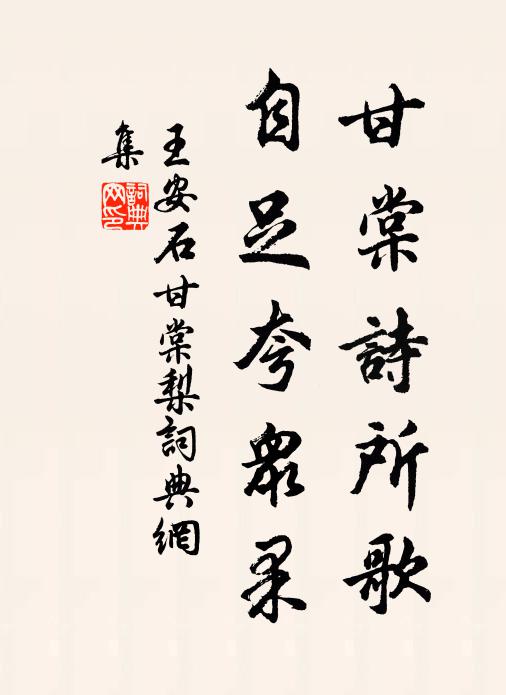 甘棠詩所歌
自足夸衆果
王安石甘棠梨詞典網
集
詞典
网印